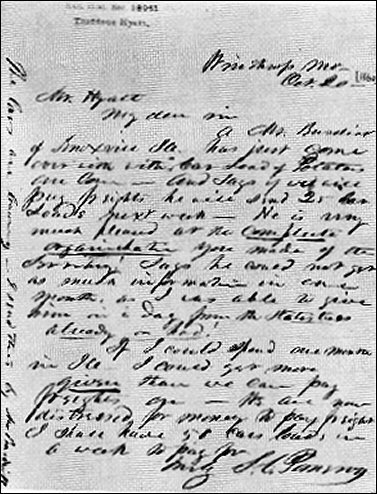 18951
Thaddeus Hyatt.
Winthrop Mo
Oct. 20 [1860
Mr. Hyatt
My dear sir
A Mr. Burdick
of Knoxville Ills. has just come
over with car load of Potatoes
and Corn — and says if we will
pay freights he will send 25 car
loads next week — He is very
much pleased at the complete
organization you made of the
Territory! Says he could not get
as much information in one
month, as I was able to give
him in a day from the Statistics
already on hand!
If I could spend one month
in Ills I could get more
given than we can pay
freights on — We are now
distressed for money to pay freight
I shall have 50 cars loads in
a week to pay for
S. C. Pomeroy
The cars are
I send this by